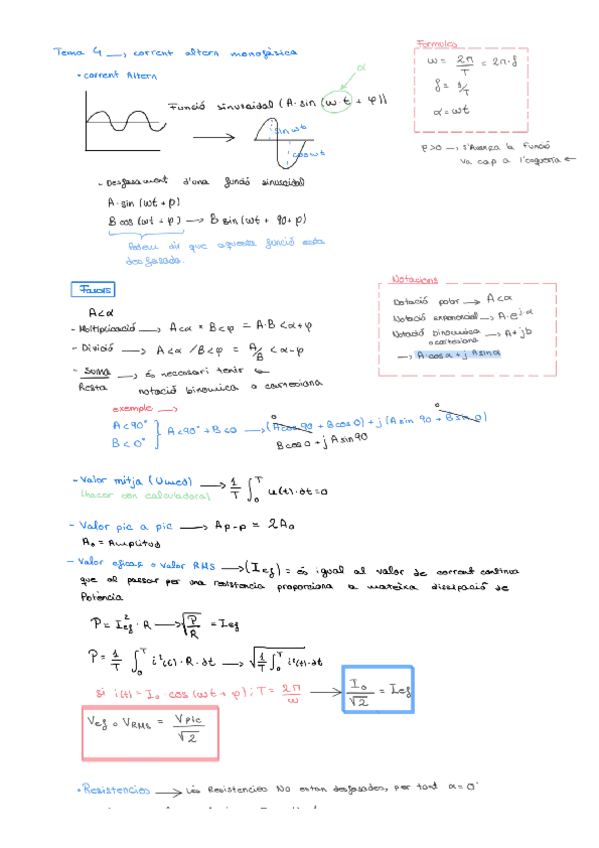 Tema 4 → corrent altern monofàsica
• corrent Altern
Funció sinusoidal (A·sin (w·t + φ))
α
sin wt
cos wt
Formules
w = 2π/T = 2π·f
f = 1/T
α = wt
φ>0 → s'Avança la Funció
va cap a l'esquerra ←
- Desfasament d'una funció sinusoidal
A·sin (wt + φ)
B cos (wt + φ) → B sin (wt + 90 + φ)
Podem dir que aquesta funció esta
desfasada.
Fasors
A<α
- Multiplicació → A<α * B<φ = A·B <α+φ
- Divisió → A<α / B<φ = A/B <α-φ
- Suma → és necessari tenir ←
Resta notació binomica o cartesiana
Notacions
Notació polar → A<α
Notació exponencial → A·e^j·α
Notació binomica → A+jb
o cartesiana
→ A·cosα + j A sinα
exemple →
A<90°
B<0°
A<90° + B<0 → (A cos 90 + B cos 0) + j (A sin 90 + B sin 0)
0
0
B cos 0 + j A sin 90
- Valor mitja (Umed) → 1/T ∫₀ᵀ u(t)·dt = 0
(hacer con calculadora)
- Valor pic a pic → Ap-p = 2A₀
A₀ = Amplitud
- Valor eficaç o valor RMS → (Ief) = és igual al valor de corrent continua
que al passar per una resistencia proporciona la mateixa dissipació de
Potència
P = I²ef · R → √(P/R) = Ief
P = 1/T ∫₀ᵀ i²(t)·R·dt → √(1/T ∫₀ᵀ i²(t)·dt)
si i(t) = I₀·cos (wt + φ); T = 2π/w → I₀/√2 = Ief
Vef o VRMS = Vpic/√2
• Resistencies → Les Resistencies No estan desfasades, per tant α = 0°